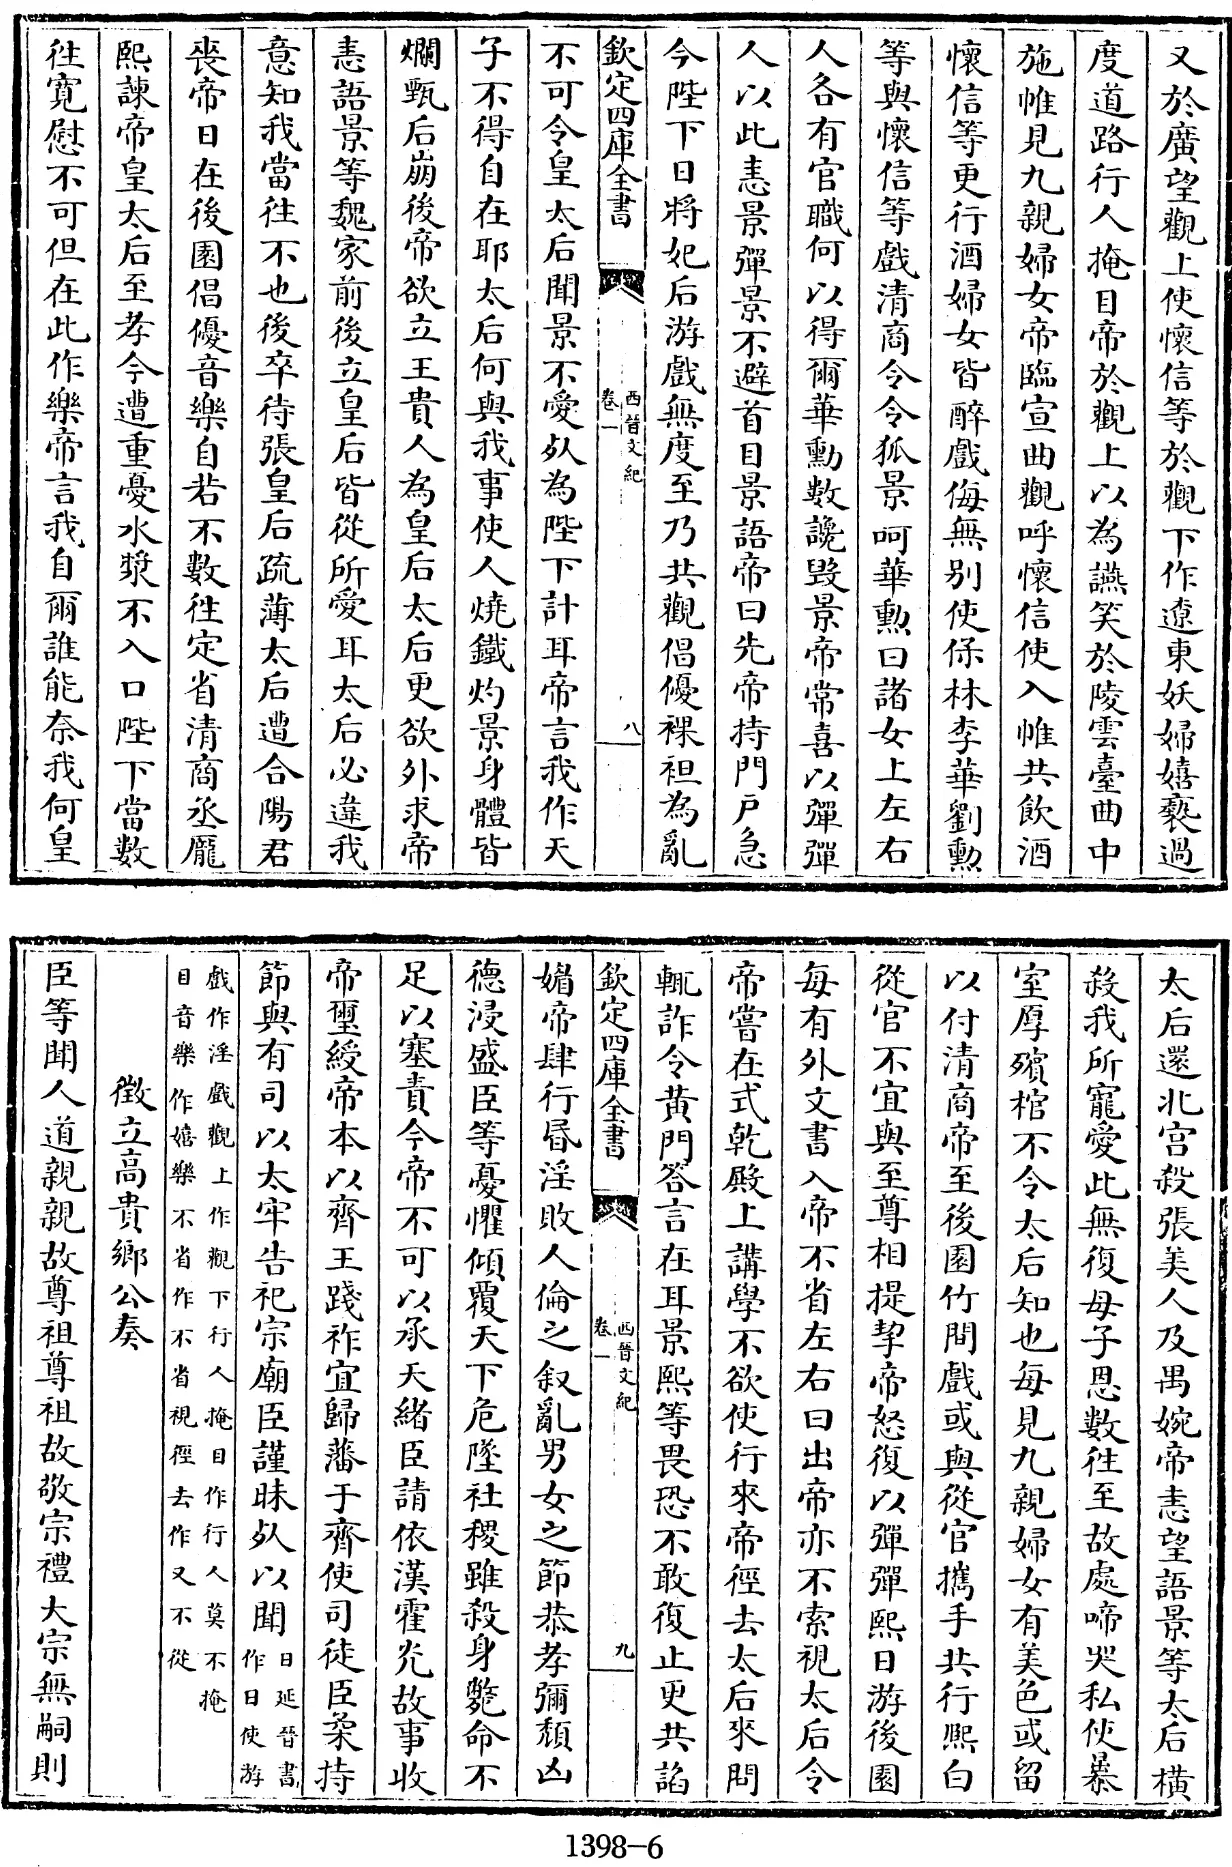 又於廣望觀上使懷信等於觀下作遼東妖婦嬉褻過
度道路行人掩目帝於觀上以為讌笑於陵雲臺曲中
施帷見九親婦女帝臨宣曲觀呼懷信使入帷共飲酒
懷信等更行酒婦女皆醉戲侮無别使保林李華劉勲
等與懷信等戲清商令令狐景呵華勲曰諸女上左右
人各有官職何以得爾華勲數讒毀景帝常喜以彈彈
人以此恚景彈景不避首目景語帝曰先帝持門户急
今陛下日將妃后游戲無度至乃共觀倡優裸袒為亂
欽定四庫全書
西晉文紀
卷一
八
不可令皇太后聞景不愛死為陛下計耳帝言我作天
子不得自在耶太后何與我事使人燒鐵灼景身體皆
爛甄后崩後帝欲立王貴人為皇后太后更欲外求帝
恚語景等魏家前後立皇后皆從所愛耳太后必違我
意知我當往不也後卒待張皇后疏薄太后遭合陽君
喪帝日在後園倡優音樂自若不數往定省清商丞龐
熙諫帝皇太后至孝今遭重憂水漿不入口陛下當數
往寛慰不可但在此作樂帝言我自爾誰能奈我何皇
太后還北宫殺張美人及禺婉帝恚望語景等太后横
殺我所寵愛此無復母子恩數往至故處啼哭私使暴
室厚殯棺不令太后知也每見九親婦女有美色或留
以付清商帝至後園竹間戲或與從官攜手共行熙白
從官不宜與至尊相提挈帝怒復以彈彈熙日游後園
每有外文書入帝不省左右曰出帝亦不索視太后令
帝嘗在式乾殿上講學不欲使行來帝徑去太后來問
輒詐令黄門答言在耳景熙等畏恐不敢復止更共諂
欽定四庫全書
西晉文紀
卷一
九
媚帝肆行昏淫敗人倫之叙亂男女之節恭孝彌頹凶
德浸盛臣等憂懼傾覆天下危墜社稷雖殺身斃命不
足以塞責今帝不可以承天緒臣請依漢霍光故事收
帝璽綬帝本以齊王踐祚宜歸藩于齊使司徒臣柔持
節與有司以太牢告祀宗廟臣謹昧死以聞日延晉書作日使游
戲作淫戲觀上作觀下行人掩目作行人莫不掩
目音樂作嬉樂不省作不省視徑去作又不從
徵立高貴鄉公奏
臣等聞人道親親故尊祖尊祖故敬宗禮大宗無嗣則
1398-6